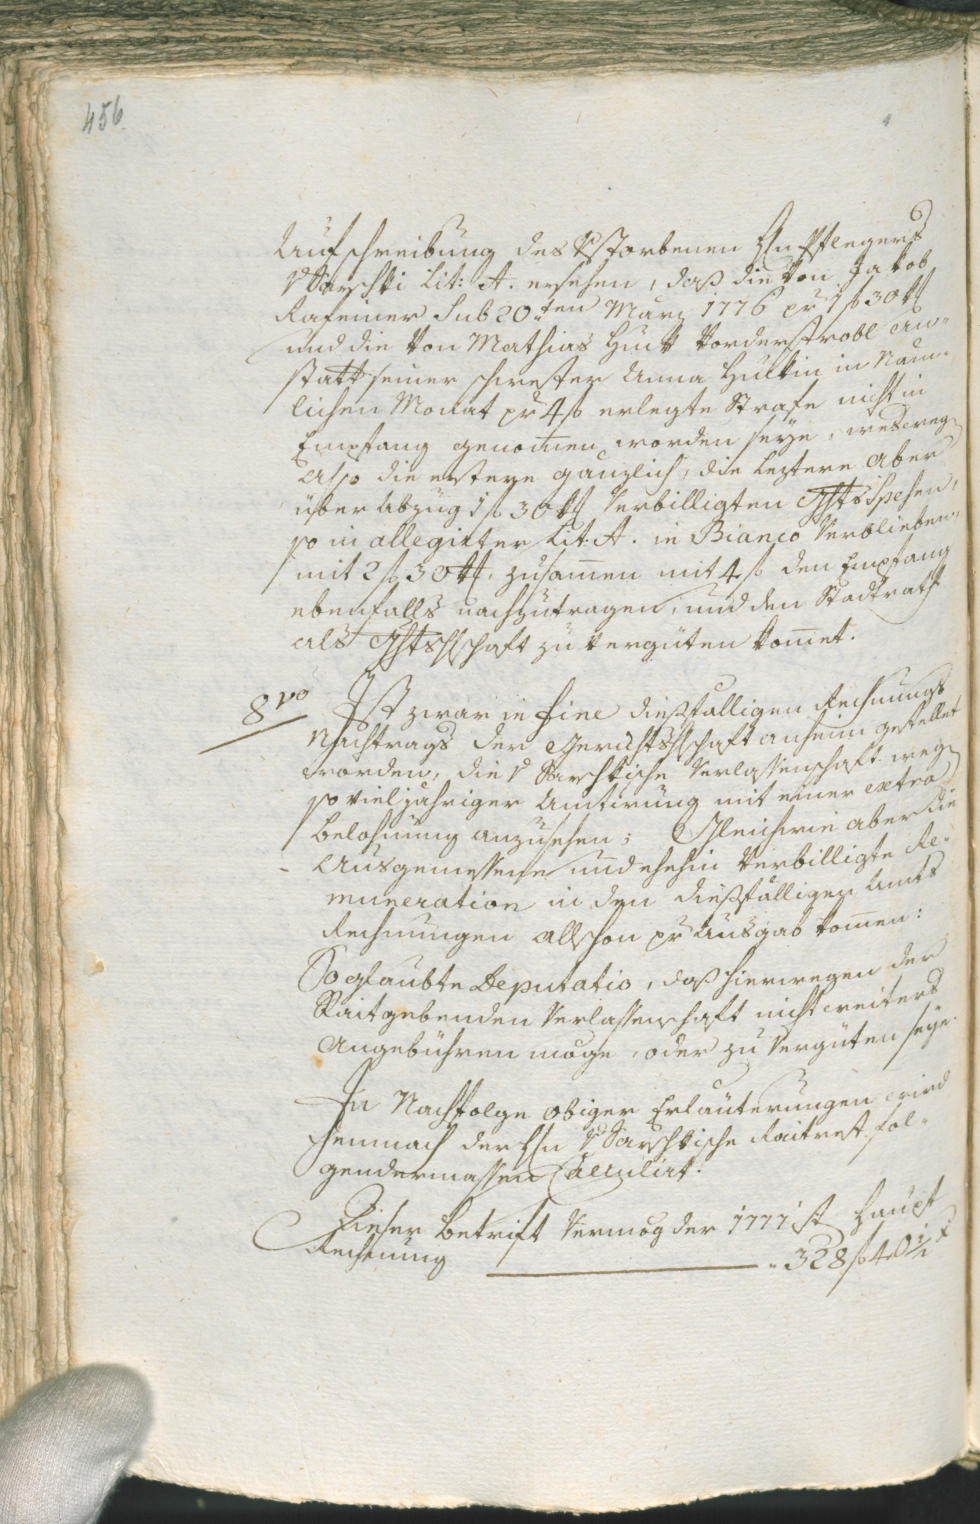 456.
Aufschreibung des Vstorbenen Hn Pflegers
v Sarsthi Lit: A. ersehen, daß die von Jakob
Rafeiner Sub 20ten Marz 1776 pr 1 f 30 xr
und die von Mathias Hutt Vorderstrobl an-
statt seiner schwester Anna Huttin in Nam-
lichen Monat pr 4 f erlegte Strafe nicht in
Empfang genomen worden seÿe, weswegen
also die erstere ganzlich, die leztere aber
über abzug 1 f 30 xr verbilligten Ghts Spesen,
so in allegirter Lit. A. in Bianco verblieben,
mit 2 f 30 xr. zusamen mit 4 f den Empfang
ebenfalls nachzutragen, und den Stadtrath
als Ghtshschaft zu verguten komet.
8vo Ist zwar in fine dießfälligen Rechnungs
Nachtrags der Gerichtshschaft anheim gestellet
worden, die v Sarsthische Verlassenschaft wegen
so vieljahriger Amtirung mit einer extra
Belohnung anzusehen; Gleichwie aber die
Ausgemessene und ehehin verbilligte Re-
muneration in den dießfälligen Amts
Rechnungen allschon pr Ausgab komen:
So glaubte Deputatio, daß hierwegen der
Raitgebenden Verlassenschaft nicht weiters
angebühren möge, oder zu verguten seÿe.
In Nachfolge obiger Erlauterungen wird
hemnach der Hn v Sarsthische Raitrest fol-
gendermassen Calculirt:
Dieser betrift vermög der 1777ist Haupt
Rechnung 328 f 40 ½ x